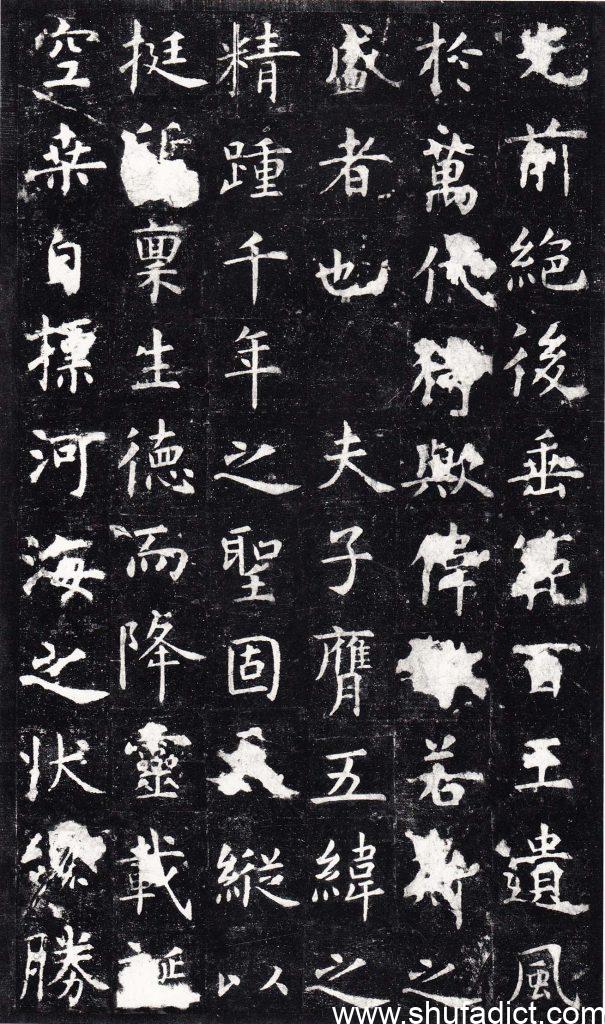 光前絕後垂範百王遺風
於萬代猗歟偉若斯之
盛者也夫子膺五緯之
精踵千年之聖固天縱以
挺質稟生德而降靈載誕
空桒自摽河海之狀纔勝
www.shufadict.com